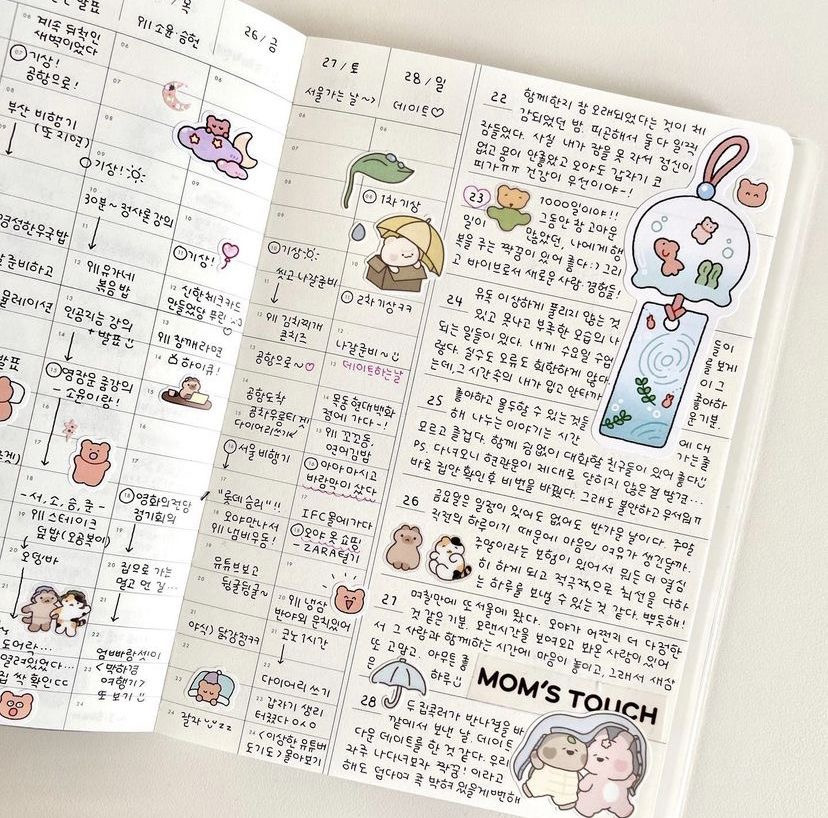 발표
계속 뒤척인
새벽이었다
07 기상!
공항으로!
부산 비행기
(또 지연)
경성한우국밥
갈준비하고
뮬레이션
발표
오뎅바
열려있었다...
집 싹 확인 ㄷㄷ
위 소윤·승현
기상!
30분~ 정사론강의
위 유가네
볶음밥
인공지능 강의
+ 발표
15 영장운 중강의
- 소윤이랑!
- 서, 소, 승, 준 -
위 스테이크
덮밥 (오공복이)
26 / 금
11 기상!
신한체크카드
만들었당 뿌린 :)
위 참깨라면
하이큐!
18 영화의전당
정기회의
집으로 가는
멀고 먼 길...
엄빠랑셋이
<박하경
여행기>
또 보기
27 / 토
서울가는 날~>
10 기상
씻고 나갈준비
위 김치찌개
공항으로~♡
공항도착
공차우롱티겟
다이어리쓰기
16 서울 비행기
"롯데 승리"!!
오야만나서
위 냄비우동!
유튜브보고
뒹굴뒹굴~
야식) 닭강정ㅋㅋ
잘자 zz
28 / 일
데이트♡
08 1차기상
11 2차기상ㅋㅋ
나갈준비~
데이트하는날
목동현대백화
점에 가다~!
위 꼬꼬동,
연어김밥
16 아아마시고
바람맞이 샀다
IFC몰에가다
18 오야 옷 쇼핑
ZARA털기
위 냉삼
반야외 운치있어
코노 1시간
다이어리 쓰기
갑자기 생리
터졌다 ㅇㅅㅇ
<이상한 유튜버
도기도> 몰아보기
22 함께한지 참 오래되었다는 것이 체
감되었던 밤. 피곤해서 둘 다 일찍
잠들었다. 사실 내가 잠을 못 자서 정신이
없고 몸이 안좋았고 오야도 갑자기 코
피가ㅠㅠ 건강이 우선이야-!
23 1000일이야!!
그동안 참 고마운
일이 많았던, 나에게 행
복을 주는 짝꿍이 있어 좋다 :) 그리
고 바이브로서 새로운 사랑 경험들!
24 유독 이상하게 풀리지 않는 것
있고 못나고 부족한 모습의 나
되는 일들이 있다. 내게 수요일 수업
렇다. 실수도 오류도 회항하게 많다
는데, 그 시간속의 내가 입고 안타까
들이
로 보게
이 그
좋아하
운 기분.
25 좋아하고 몰두할 수 있는 것들에 대
해 나누는 이야기는 시간 가는 줄
모르고 즐겁다. 함께 쉼없이 대화할 친구들이 있어 좋다
PS. 다녀오니 현관문이 제대로 닫히지 않은 걸 발견...
바로 집안 확인후 비번을 바꿨다. 그래도 불안하고 무서워ㅠ
26 금요일은 일정이 있어도 없어도 반가운 날이다. 주말
직전의 하루이기 때문에 마음의 여유가 생긴달까.
주말이라는 보험이 있어서 뭐든 더 열심
히 하게 되고 적극적으로 최선을 다하
는 하루를 보낼 수 있는 것 같다. 뿌듯해!
27 며칠만에 또 서울에 왔다. 오야가 어쩐지 더 다정한
것 같은 기분. 오랜시간을 보여오고 봐온 사람이 있어
서 그 사람과 함께하는 시간에 마음이 놓이고, 그래서 새삼
또 고맙고. 아무튼 좋
은 하루
MOM'S TOUCH
28 두 집콕러가 반나절을 바
깥에서 보낸 날. 데이트
다운 데이트를 한 것 같다. 우리
자주 나다녀보자 짝꿍! 이라고
해도 덥다며 콕 박혀있을게 뻔해